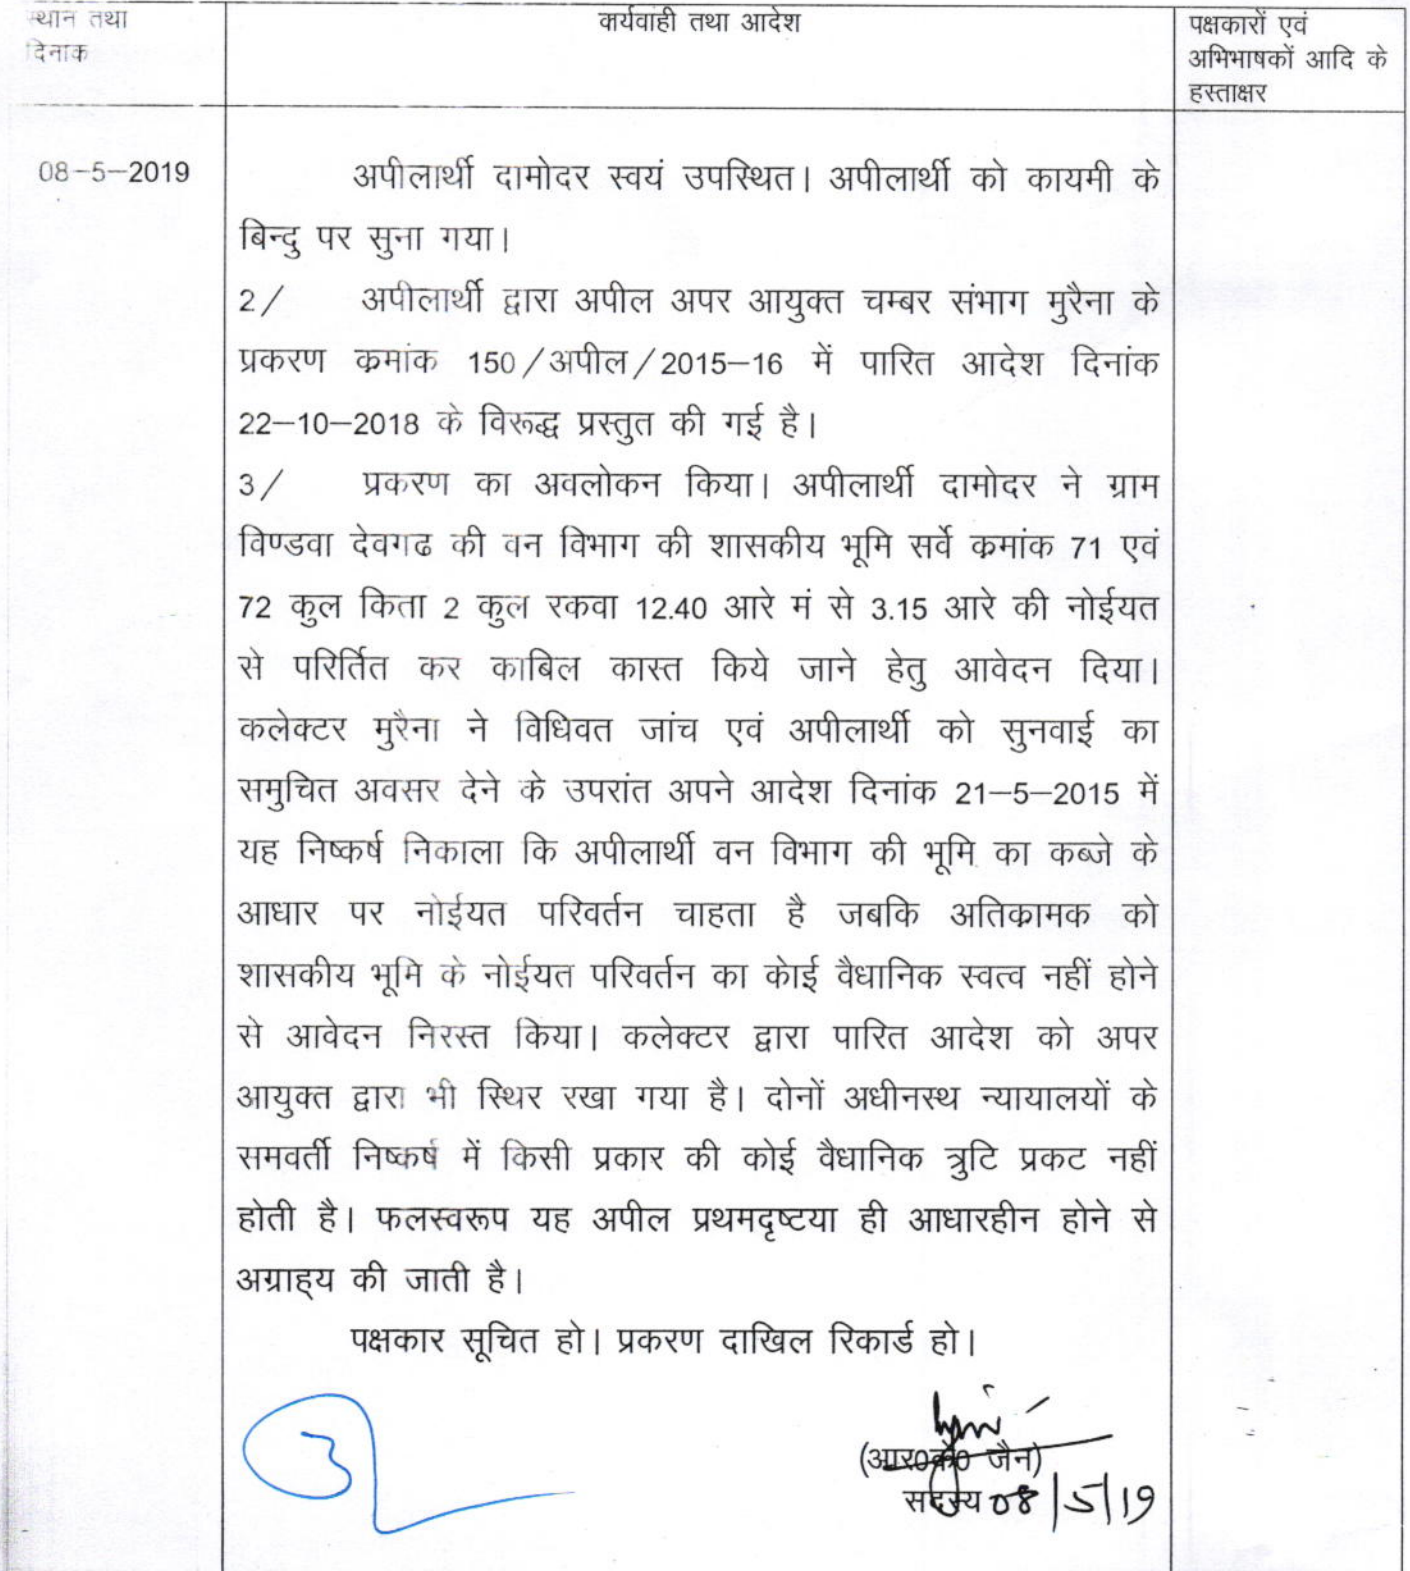 स्थान तथा
दिनांक
कार्यवाही तथा आदेश
पक्षकारों एवं
अभिभाषकों आदि के
हस्ताक्षर
08-5-2019
अपीलार्थी दामोदर स्वयं उपस्थित। अपीलार्थी को कायमी के
बिन्दु पर सुना गया।
2/ अपीलार्थी द्वारा अपील अपर आयुक्त चम्बर संभाग मुरैना के
प्रकरण क्रमांक 150/अपील/2015–16 में पारित आदेश दिनांक
22–10–2018 के विरूद्ध प्रस्तुत की गई है।
3/ प्रकरण का अवलोकन किया। अपीलार्थी दामोदर ने ग्राम
विण्डवा देवगढ की वन विभाग की शासकीय भूमि सर्वे क्रमांक 71 एवं
72 कुल किता 2 कुल रकवा 12.40 आरे मं से 3.15 आरे की नोईयत
से परिर्तित कर काबिल कास्त किये जाने हेतु आवेदन दिया।
कलेक्टर मुरैना ने विधिवत जांच एवं अपीलार्थी को सुनवाई का
समुचित अवसर देने के उपरांत अपने आदेश दिनांक 21–5–2015 में
यह निष्कर्ष निकाला कि अपीलार्थी वन विभाग की भूमि का कब्जे के
आधार पर नोईयत परिवर्तन चाहता है जबकि अतिक्रामक को
शासकीय भूमि के नोईयत परिवर्तन का केाई वैधानिक स्वत्व नहीं होने
से आवेदन निरस्त किया। कलेक्टर द्वारा पारित आदेश को अपर
आयुक्त द्वारा भी स्थिर रखा गया है। दोनों अधीनस्थ न्यायालयों के
समवर्ती निष्कर्ष में किसी प्रकार की कोई वैधानिक त्रुटि प्रकट नहीं
होती है। फलस्वरूप यह अपील प्रथमदृष्टया ही आधारहीन होने से
अग्राह्य की जाती है।
पक्षकार सूचित हो। प्रकरण दाखिल रिकार्ड हो।
(आर0के0 जैन)
सदस्य 08/5/19